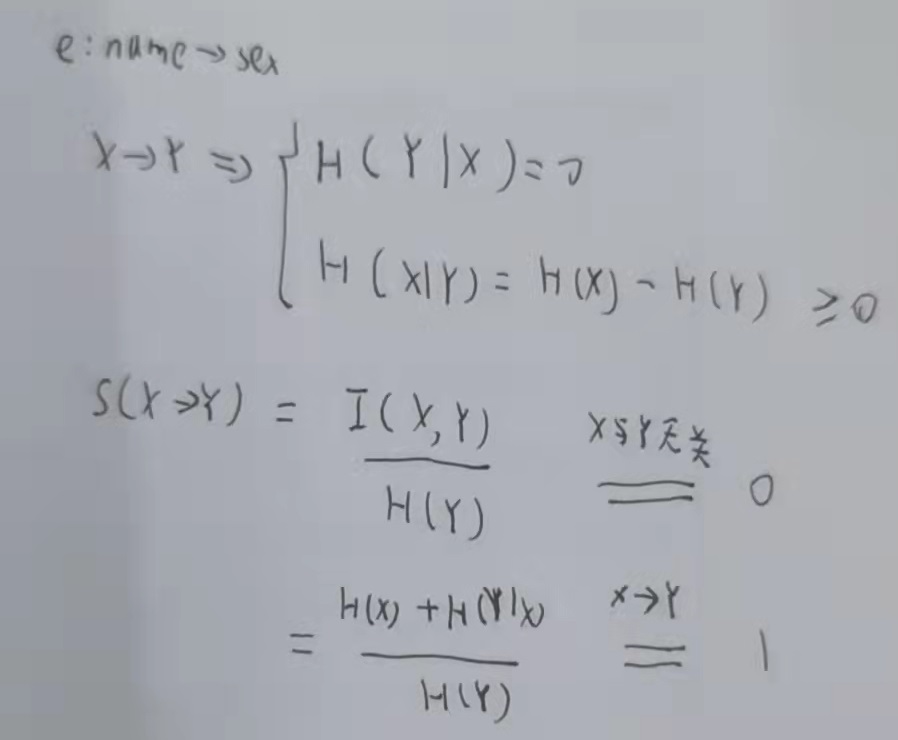 e: name → sex
X → Y ⇒ { H(Y|X) = 0
H(X|Y) = H(X) - H(Y) ≥ 0
S(X→Y) = I(X,Y) / H(Y) X与Y无关 == 0
= H(X) + H(Y|X) / H(Y) X→Y == 1